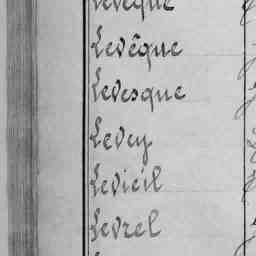 Levêque
Levêque
Levesque
Levey
Levieil
Levrel